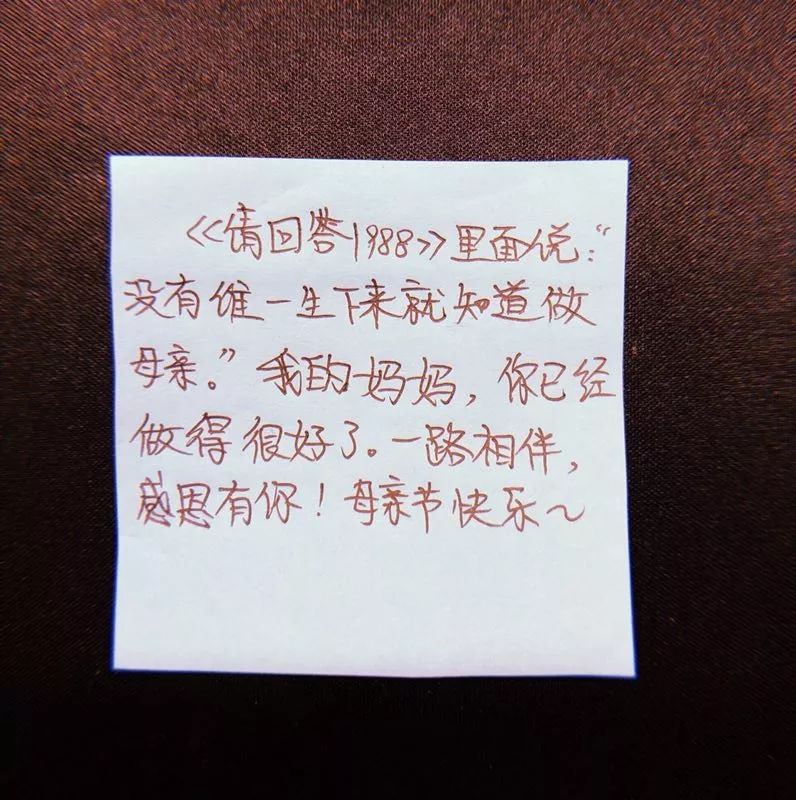 《请回答1988》里面说:“
没有谁一生下来就知道做
母亲。”我的妈妈,你已经
做得很好了。一路相伴,
感恩有你!母亲节快乐~